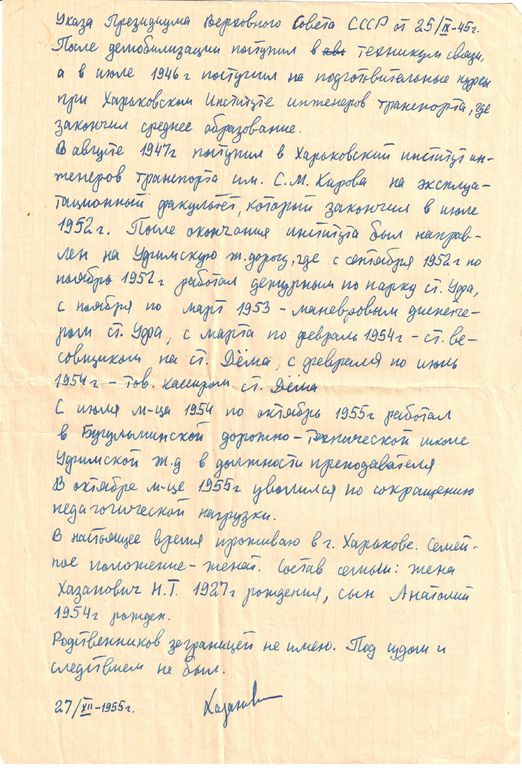 Указа Президиума Верховного Совета СССР от 25/IX-45г.
После демобилизации поступил в техникум связи,
а в июле 1946 г поступил на подготовительные курсы
при Харьковском Институте инженеров транспорта, где
закончил среднее образование.
В августе 1947г поступил в Харьковский институт ин-
женеров транспорта им. С.М. Кирова на эксплуа-
тационный факультет, который закончил в июле
1952 г. После окончания института был направ-
лен на Уфимскую ж.дорогу, где с сентября 1952г по
ноябрь 1952г работал дежурным по парку ст. Уфа,
с ноября по март 1953 - маневровым диспетче-
ром ст. Уфа, с марта по февраль 1954г - ст. ве-
совщиком на ст. Дёма, с февраля по июль
1954 г - тов. кассиром ст. Дёма
С июля м-ца 1954 по октябрь 1955г работал
в Бугульминской дорожно-технической школе
Уфимской ж.д в должности преподавателя
В октябре м-це 1955г уволился по сокращению
педагогической нагрузки.
В настоящее время проживаю в г. Харькове. Семей-
ное положение - женат. Состав семьи: жена
Хазанович Н.Т. 1927г рождения, сын Анатолий
1954г рожден.
Родственников заграницей не имею. Под судом и
следствием не был.
27/XII-1955г.